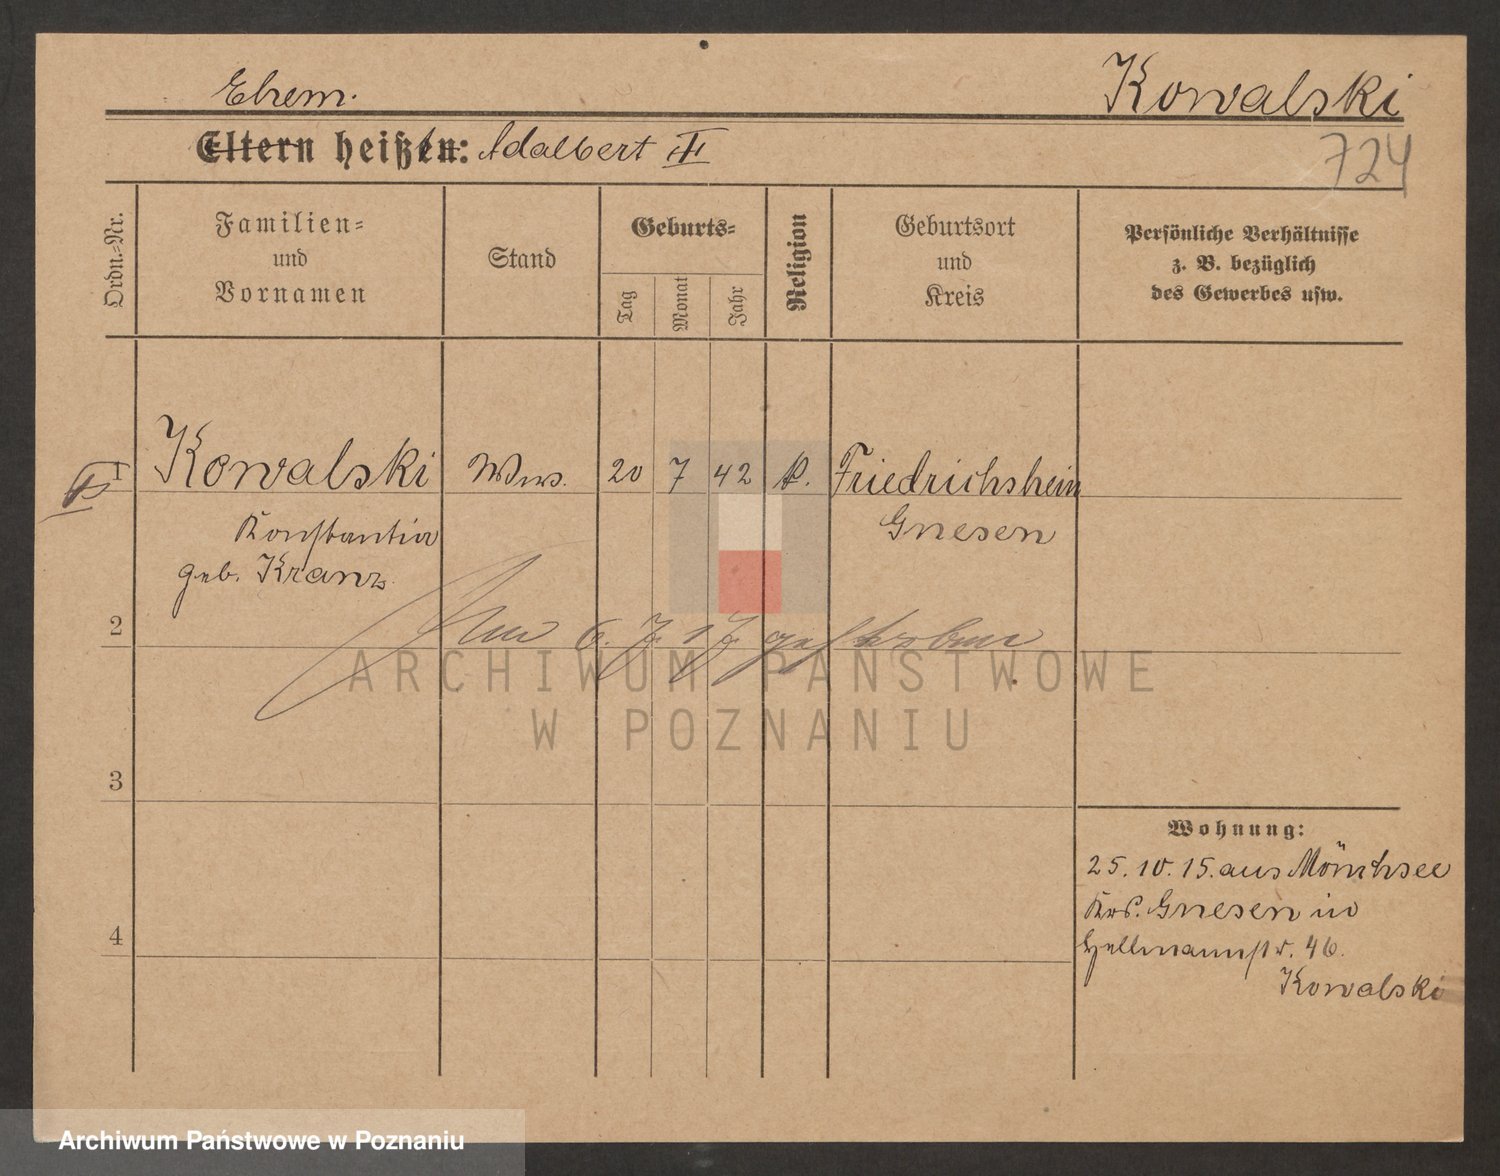 Ehem.
Kowalski
Eltern heißen: Adalbert III
724
Ordn.-Nr.
Familien-
und
Vornamen
Stand
Geburts-
Tag
Monat
Jahr
Religion
Geburtsort
und
Kreis
Persönliche Verhältnisse
z. B. bezüglich
des Gewerbes usw.
1
Kowalski
Wws.
20
7
42
k.
Friedrichshein
Gnesen
Konstantia
geb. Kranz
2
Am 6. 7. 17 gestorben
ARCHIWUM PAŃSTWOWE
W POZNANIU
3
Wohnung:
25. 10. 15. aus Mönchsee
Krs. Gnesen in
4
Hellmannstr. 46.
Kowalski
Archiwum Państwowe w Poznaniu